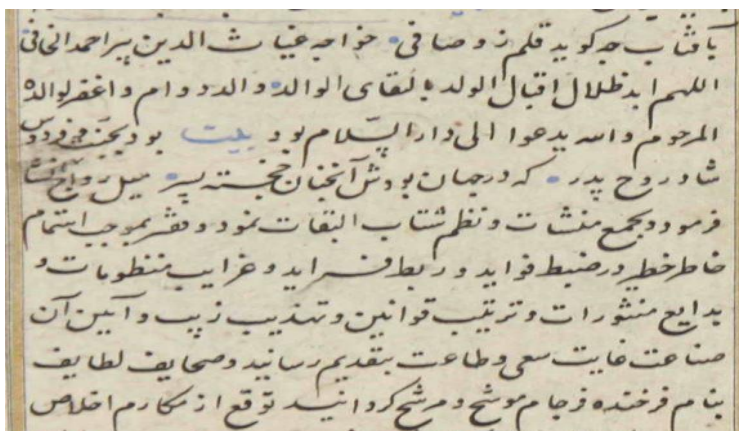 بافتاب چه کوید قلم ز وصافی خواجه غیاث الدین پیر احمد الخافی
اللهم ابد ظلال اقبال الولد بالقای الوالد والدد ووام واغفر لوالده
المرحوم والله یدعوا الی دار السلام بود بیت بود بجنت فردوس
شاد روح پدر که در جهان بودش آنچنان خجسته پسر میل رواج
فرمود و بجمع منشات و نظم شتاب التفات نمود و فقیر بموجب استمام
خاطر خطیر در ضبط فواید و ربط فراید و غرایب منظومات و
بدایع منثورات و ترتیب قوانین و تهذیب زیب و آیین آن
صناعت غایت سعی و طاعت بتقدیم رسانید و صحایف لطایف
بنام فرخنده فرجام موشح و مرشح کردانید توقع از مکارم اخلاص